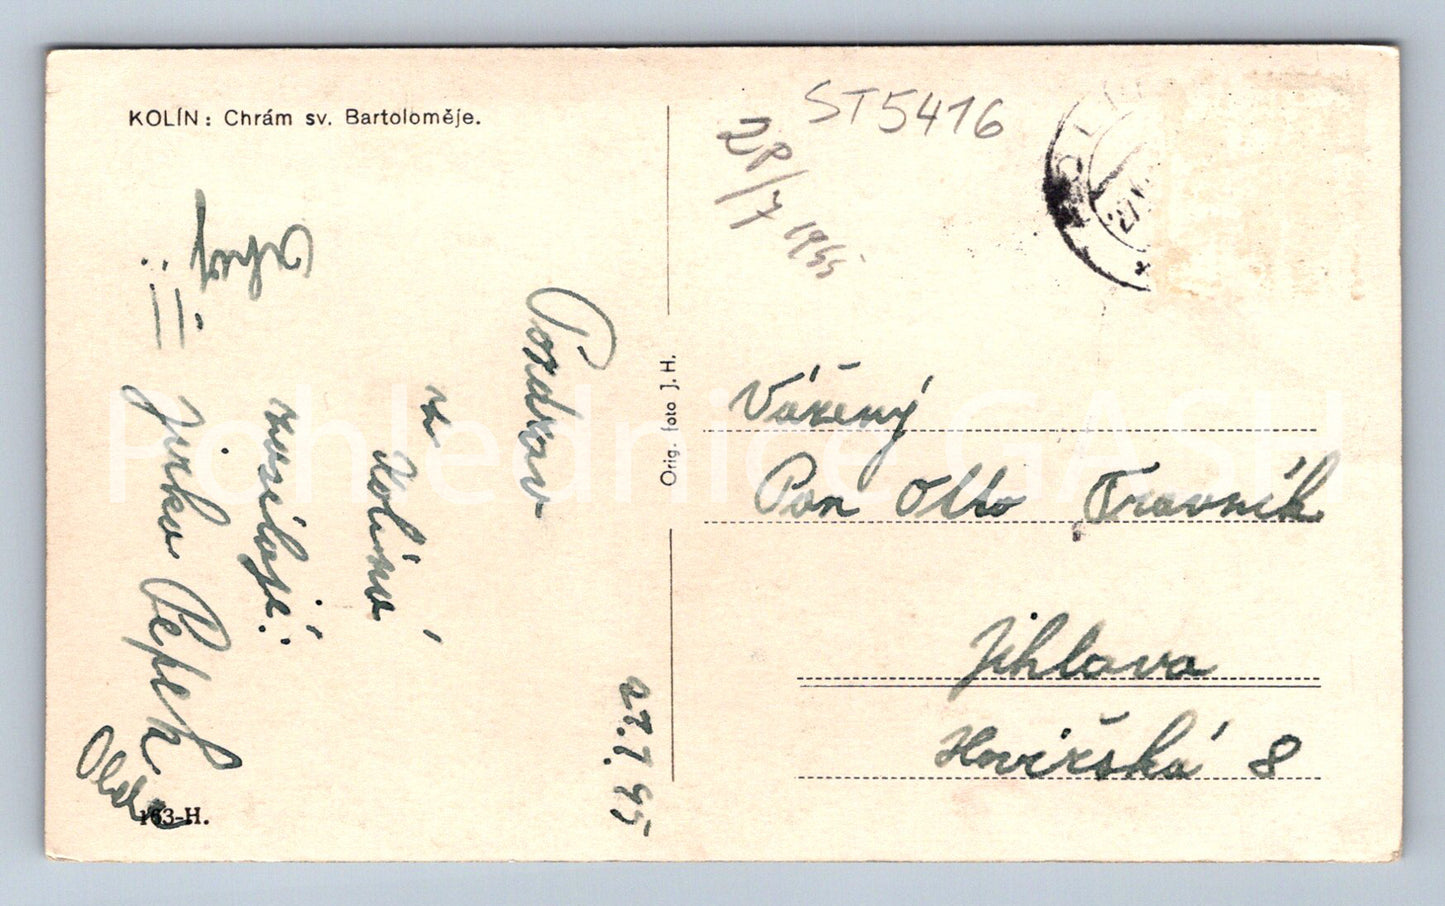 KOLÍN: Chrám sv. Bartoloměje.
Pozdrav
z Kolína
zasílají:
Jirka Pepek
Olda
27.7.45
163-H.
Orig. foto J. H.
ST5416
28/7 1945
Vážený
Pan Otto Travník
Jihlava
Havířská 8
Pohlednice GASH